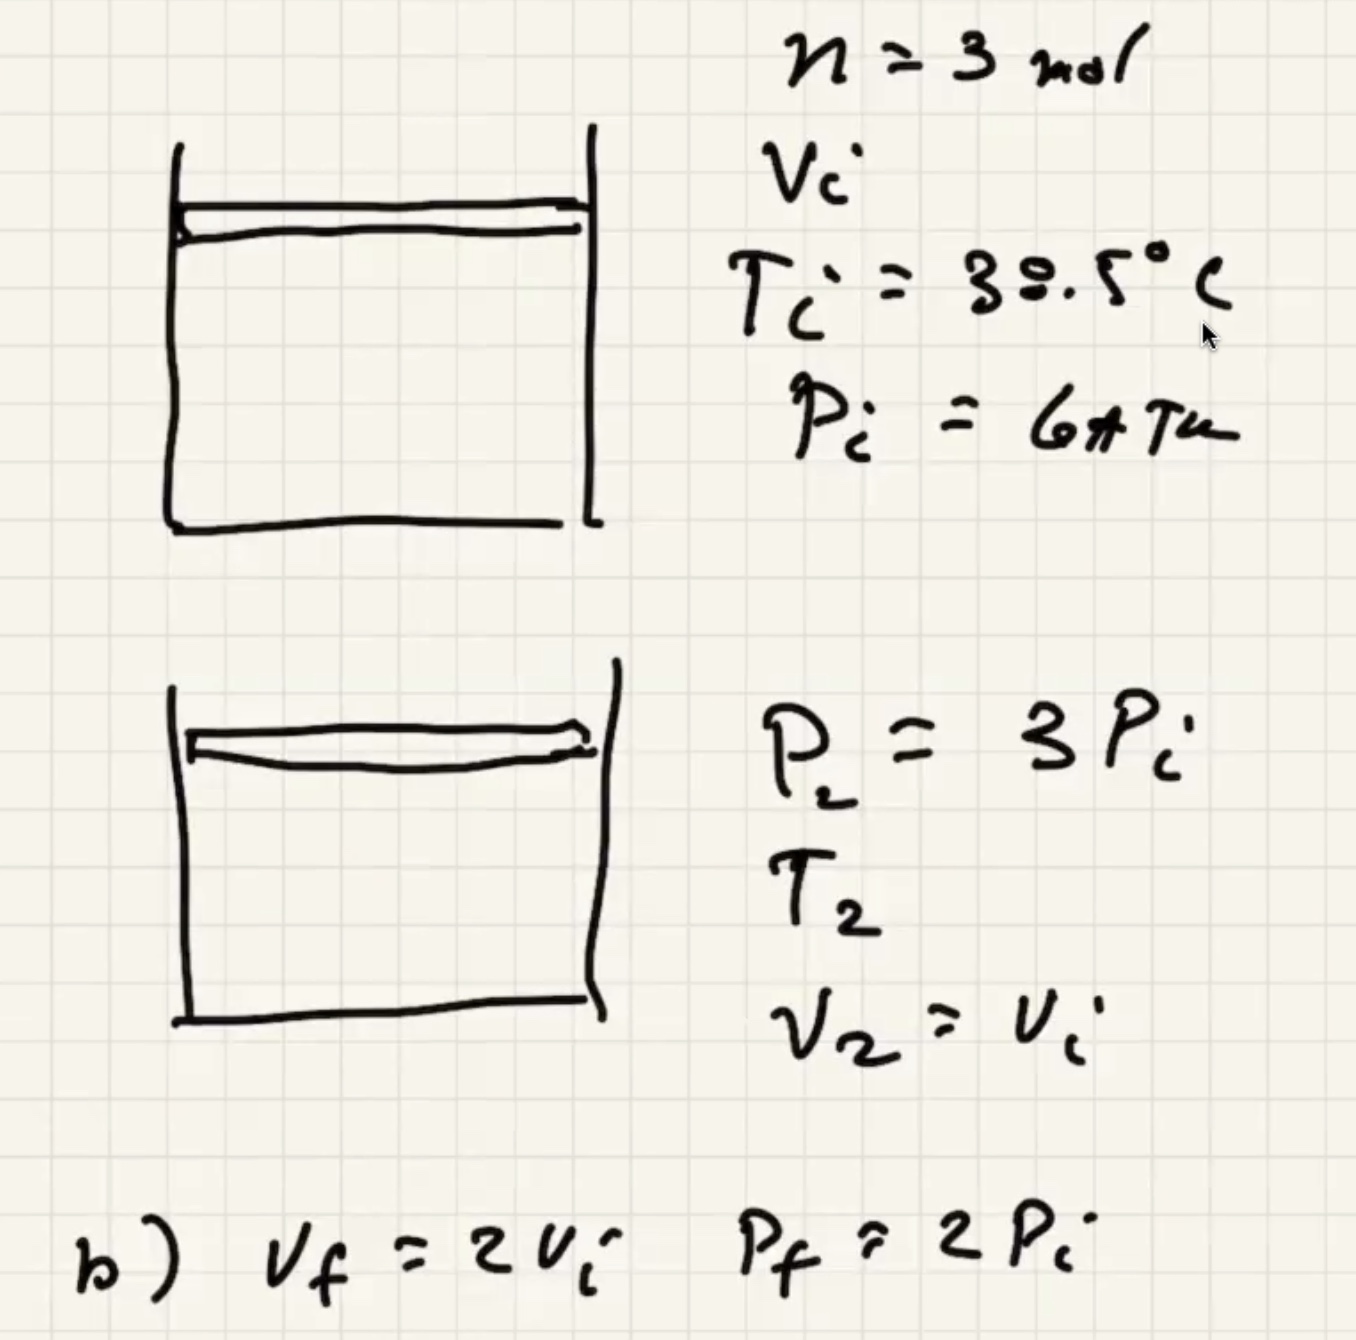 n = 3 mol
Vi
Ti = 38.5° C
Pi = 6 ATM
P2 = 3 Pi
T2
V2 = Vi
b) Vf = 2 Vi Pf = 2 Pi